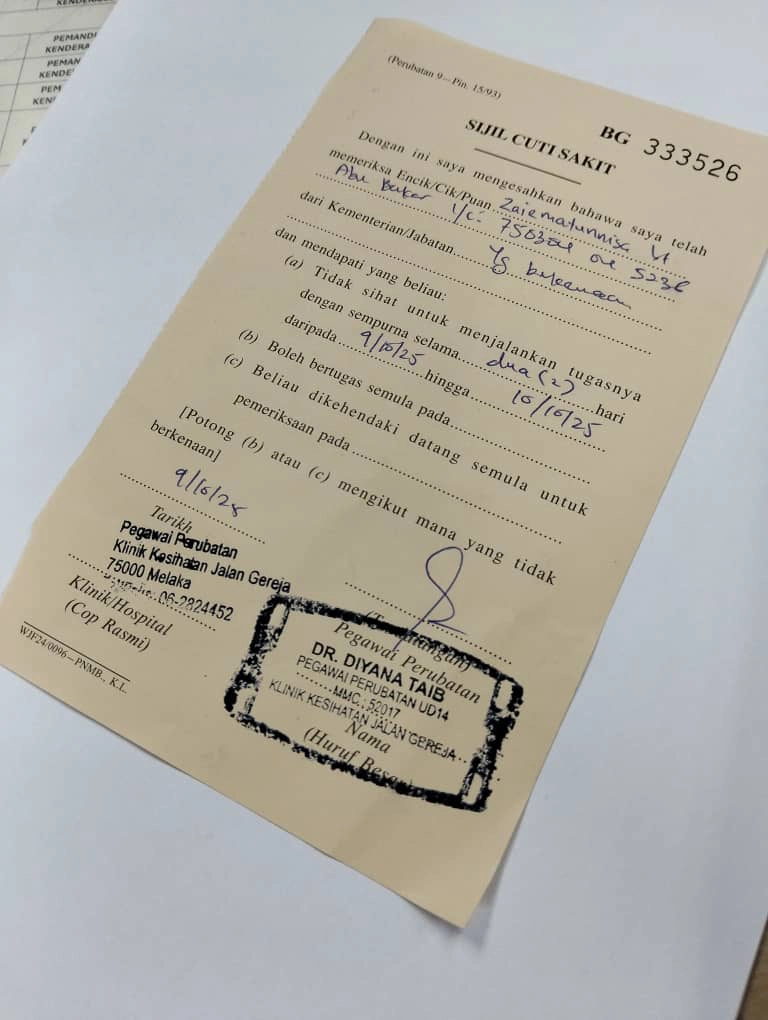 PEMANDU
KENDERA
PEMAN
KENDERA
PEM
KEN
(Perubatan 9—Pin. 15/93)
BG 333526
SIJIL CUTI SAKIT
Dengan ini saya mengesahkan bahawa saya telah
memeriksa Encik/Cik/Puan Zaiematunnisa bt
Abu Bakar I/C: 750304 04 5236
dari Kementerian/Jabatan Yg berkenaan
dan mendapati yang beliau:
(a) Tidak sihat untuk menjalankan tugasnya
dengan sempurna selama dua (2) hari
daripada 9/10/25 hingga 10/10/25
(b) Boleh bertugas semula pada
(c) Beliau dikehendaki datang semula untuk
pemeriksaan pada
[Potong (b) atau (c) mengikut mana yang tidak
berkenaan]
9/10/25
Tarikh
Pegawai Perubatan
Klinik Kesihatan Jalan Gereja
75000 Melaka
06-2824452
Klinik/Hospital
(Cop Rasmi)
(Tandatangan)
Pegawai Perubatan
DR. DIYANA TAIB
PEGAWAI PERUBATAN UD14
MMC: 52017
KLINIK KESIHATAN JALAN GEREJA
Nama
(Huruf Besar)
WJF24/0096—PNMB., K.L.